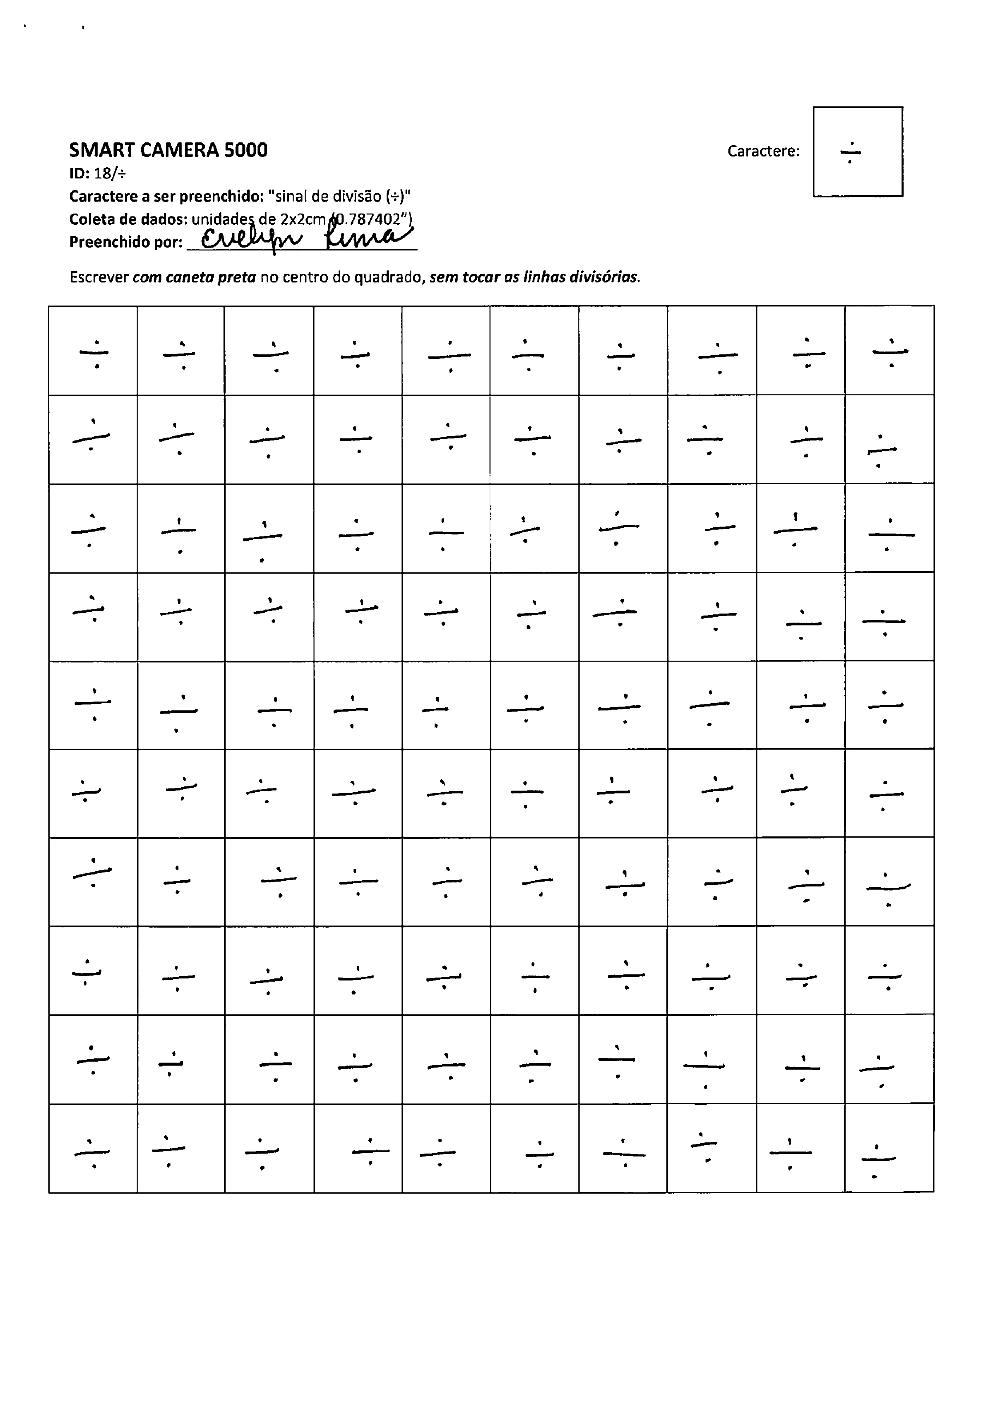 SMART CAMERA 5000
Caractere: ÷
ID: 18/÷
Caractere a ser preenchido: "sinal de divisão (÷)"
Coleta de dados: unidades de 2x2cm (0.787402")
Preenchido por: Evelyn Lima
Escrever com caneta preta no centro do quadrado, sem tocar as linhas divisórias.
÷ ÷ ÷ ÷ ÷ ÷ ÷ ÷ ÷ ÷
÷ ÷ ÷ ÷ ÷ ÷ ÷ ÷ ÷ ÷
÷ ÷ ÷ ÷ ÷ ÷ ÷ ÷ ÷ ÷
÷ ÷ ÷ ÷ ÷ ÷ ÷ ÷ ÷ ÷
÷ ÷ ÷ ÷ ÷ ÷ ÷ ÷ ÷ ÷
÷ ÷ ÷ ÷ ÷ ÷ ÷ ÷ ÷ ÷
÷ ÷ ÷ ÷ ÷ ÷ ÷ ÷ ÷ ÷
÷ ÷ ÷ ÷ ÷ ÷ ÷ ÷ ÷ ÷
÷ ÷ ÷ ÷ ÷ ÷ ÷ ÷ ÷ ÷
÷ ÷ ÷ ÷ ÷ ÷ ÷ ÷ ÷ ÷